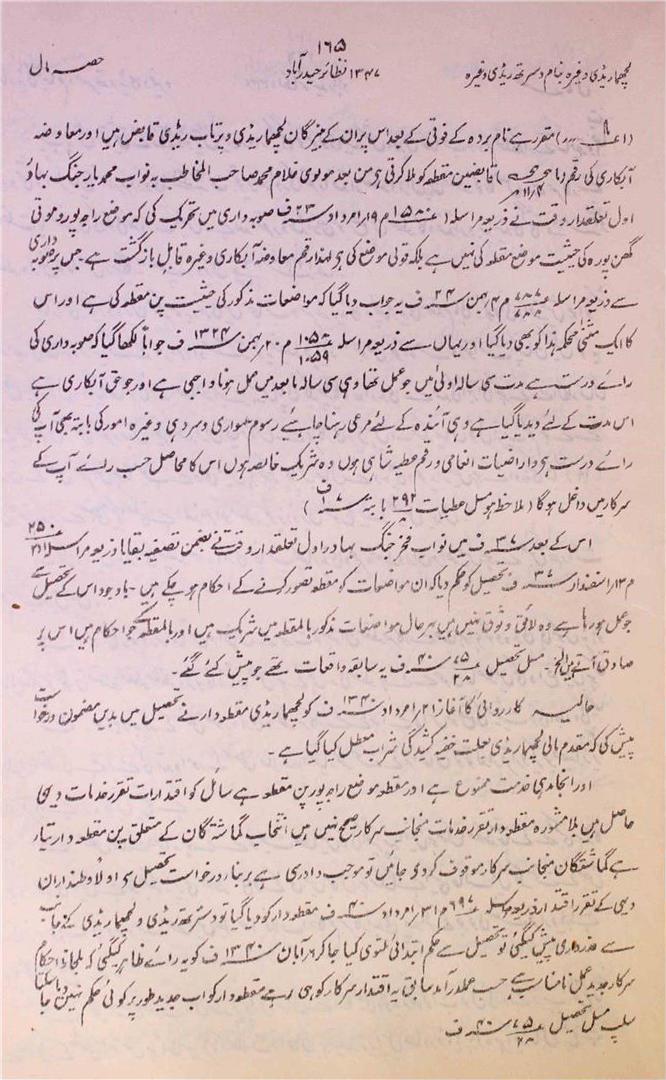 ۱۶۵
لچھماریڈی وغیرہ بنام دسرتھ ریڈی وغیرہ ۱۳۴۷ نظائر حیدرآباد حصہ مال
مقرر ہے نام بردہ کے فوتی کے بعد اس پر ان کے نبیرگان لچھماریڈی و پرتاب ریڈی قابض ہیں اور معاوضہ
آبکاری کی رقم قابضین مقطعہ کو ملا کرتی ہے من بعد مولوی غلام محمد صاحب المخاطب بہ نواب محمد یار جنگ بہادر
اول تعلقدار وقت نے ذریعہ مراسلہ ۱۵۸۰ م ۱۹ امرداد ۲۳ ف صوبہ داری میں تحریک کی کہ موضع راجہ پور و موتی
گھن پورہ کی حیثیت موضع مقطعہ کی نہیں ہے بلکہ قولی موضع کی ہے لہذا رقم معاوضہ آبکاری وغیرہ قابل بازگشت ہے جس پر صوبہ داری
سے ذریعہ مراسلہ ۷۸۷ م ۴ بہمن ۲۴ ف یہ جواب دیا گیا کہ مواضعات مذکور کی حیثیت پن مقطعہ کی ہے اور اس
کا ایک مثنیٰ محکمہ ہذا کو بھی دیا گیا اور یہاں سے ذریعہ مراسلہ ۱۰۵۸ / ۱۰۵۹ م ۲۰ بہمن ۱۳۲۴ ف جواباً لکھا گیا کہ صوبہ داری کی
رائے درست ہے مدت سی سالہ اولیٰ میں جو عمل تھا وہی سی سالہ مابعد میں عمل ہونا واجبی ہے اور جو حق آبکاری ہے
اس مدت کے لئے دیدیا گیا ہے وہی آئندہ کے لئے مرعی رہنا چاہئے رسوم سواری و سردہی وغیرہ امور کی بابتہ بھی آپ کی
رائے درست ہے و اراضیات انعامی و رقم عطیہ شاہی ہوں وہ شریک خالصہ ہوں اس کا محاصل حسب رائے آپ کے
سرکار میں داخل ہوگا (ملاحظہ ہو مسل عطیات ۲۹۲ بابتہ ۱۷ ف)
اس کے بعد ۳۷ ف میں نواب فخر جنگ بہادر اول تعلقدار وقت نے بضمن تصفیہ بقایا ذریعہ مراسلہ ۲۵۰
م ۱۳ اسفندار ۳۷ ف تحصیل کو حکم دیا کہ ان مواضعات کو مقطعہ تصور کرنے کے احکام ہوچکے ہیں۔ باوجود اس کے تحصیل سے
جو عمل ہو رہا ہے وہ لائق وثوق نہیں ہیں بہرحال مواضعات مذکور بالمقطعہ میں شریک ہیں اور بالمقطعہ کے جو احکام ہیں اس پر
صادق آتے ہیں الخ۔ مسل تحصیل ۷۵/۲۸ ۴۰ ف یہ سابقہ واقعات تھے جو پیش کئے گئے۔
حالیہ کارروائی کا آغاز ۲۱ امرداد ۱۳۴۰ ف کو لچھماریڈی مقطعہ دار نے تحصیل میں بدیں مضمون درخواست
پیش کی کہ مقدم مالی لچھماریڈی بعلت خفیہ کشیدگی شراب معطل کیا گیا ہے۔
اور انجامدہی خدمت ممنوع ہے اور مقطعہ موضع راجہ پور پن مقطعہ ہے سائل کو اقتدارات تقرر خدمات دیہی
حاصل ہیں بلا مشورہ مقطعہ دار تقرر خدمات منجانب سرکار صحیح نہیں ہیں انتخاب گماشتگان کے متعلق پن مقطعہ دار تیار
ہے گماشتگان منجانب سرکار موقوف کردی جائیں تو موجب دادرسی ہے بربناء درخواست تحصیل سے اولاً وطنداران
دیہی کے تقرر اقتدار ذریعہ مراسلہ ۶۹۷ م ۳۱ امرداد ۴۰ ف مقطعہ دار کو دیا گیا تو دسرتھ ریڈی و لچھماریڈی کے جانب
سے عذرداری پیش کی گئی تو تحصیل سے حکم ابتدائی ملتوی کیا جاکر ۶ آبان ۱۳۴۰ ف کو یہ رائے ظاہر کی گئی کہ بلحاظ احکام
سرکار جدید عمل نامناسب ہے حسب عملدرآمد سابق یہ اقتدار سرکار کو ہی رہے مقطعہ دار کو اب جدید طور پر کوئی حکم نہیں دیا جاسکتا
مسل تحصیل ۷۵/۲۸ ۴۰ ف